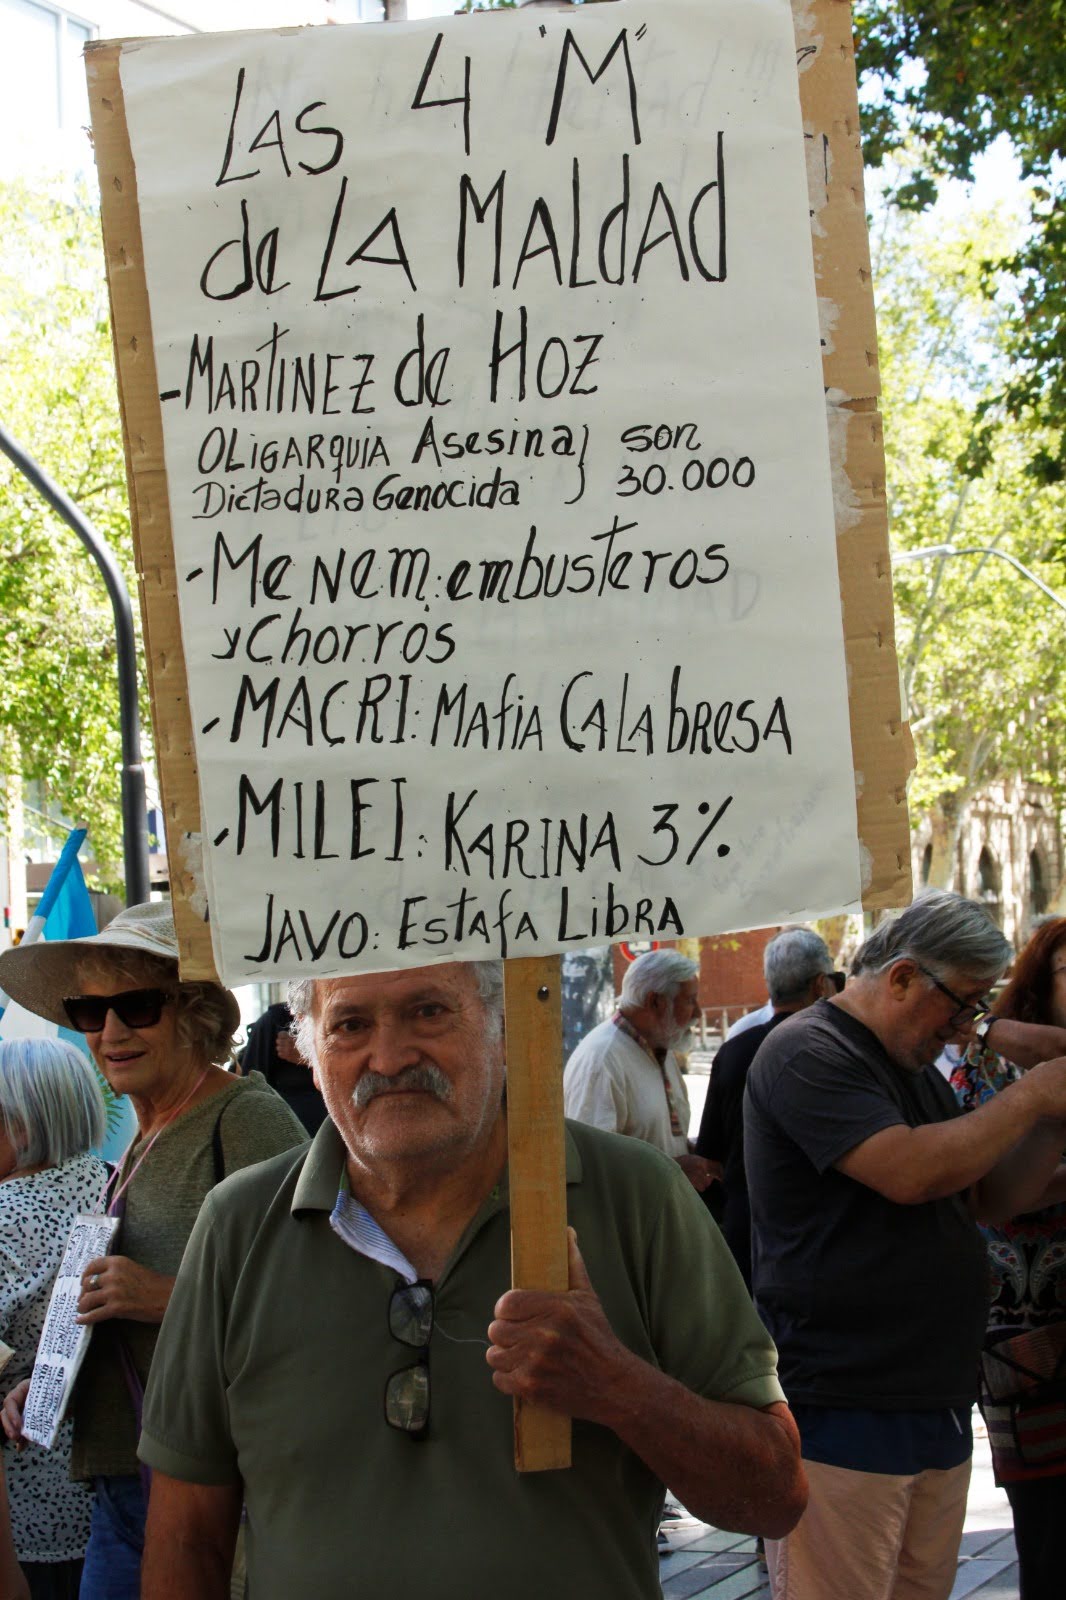 LAS 4 "M"
de LA MALdAd
-MARTINEZ de HOZ
OLIGARQUIA Asesina } son
Dictadura Genocida } 30.000
-Menem: embusteros
y Chorros
-MACRI: Mafia CALAbResA
-MILEI: KARINA 3%
JAVO: Estafa LIbRA